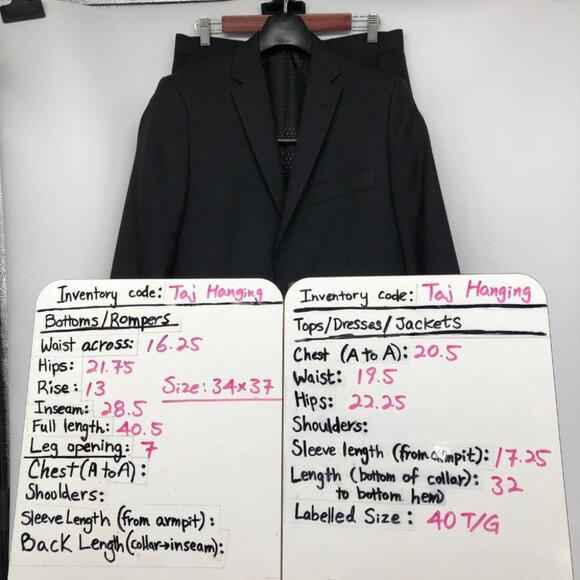 Inventory code: Taj Hanging
Bottoms/Rompers
Waist across: 16.25
Hips: 21.75
Rise: 13 Size: 34x37
Inseam: 28.5
Full length: 40.5
Leg opening: 7
Chest (A to A):
Shoulders:
Sleeve Length (from armpit):
Back Length (collar→inseam):
Inventory code: Taj Hanging
Tops/Dresses/Jackets
Chest (A to A): 20.5
Waist: 19.5
Hips: 22.25
Shoulders:
Sleeve length (from armpit): 17.25
Length (bottom of collar): 32
to bottom hem)
Labelled Size: 40 T/G